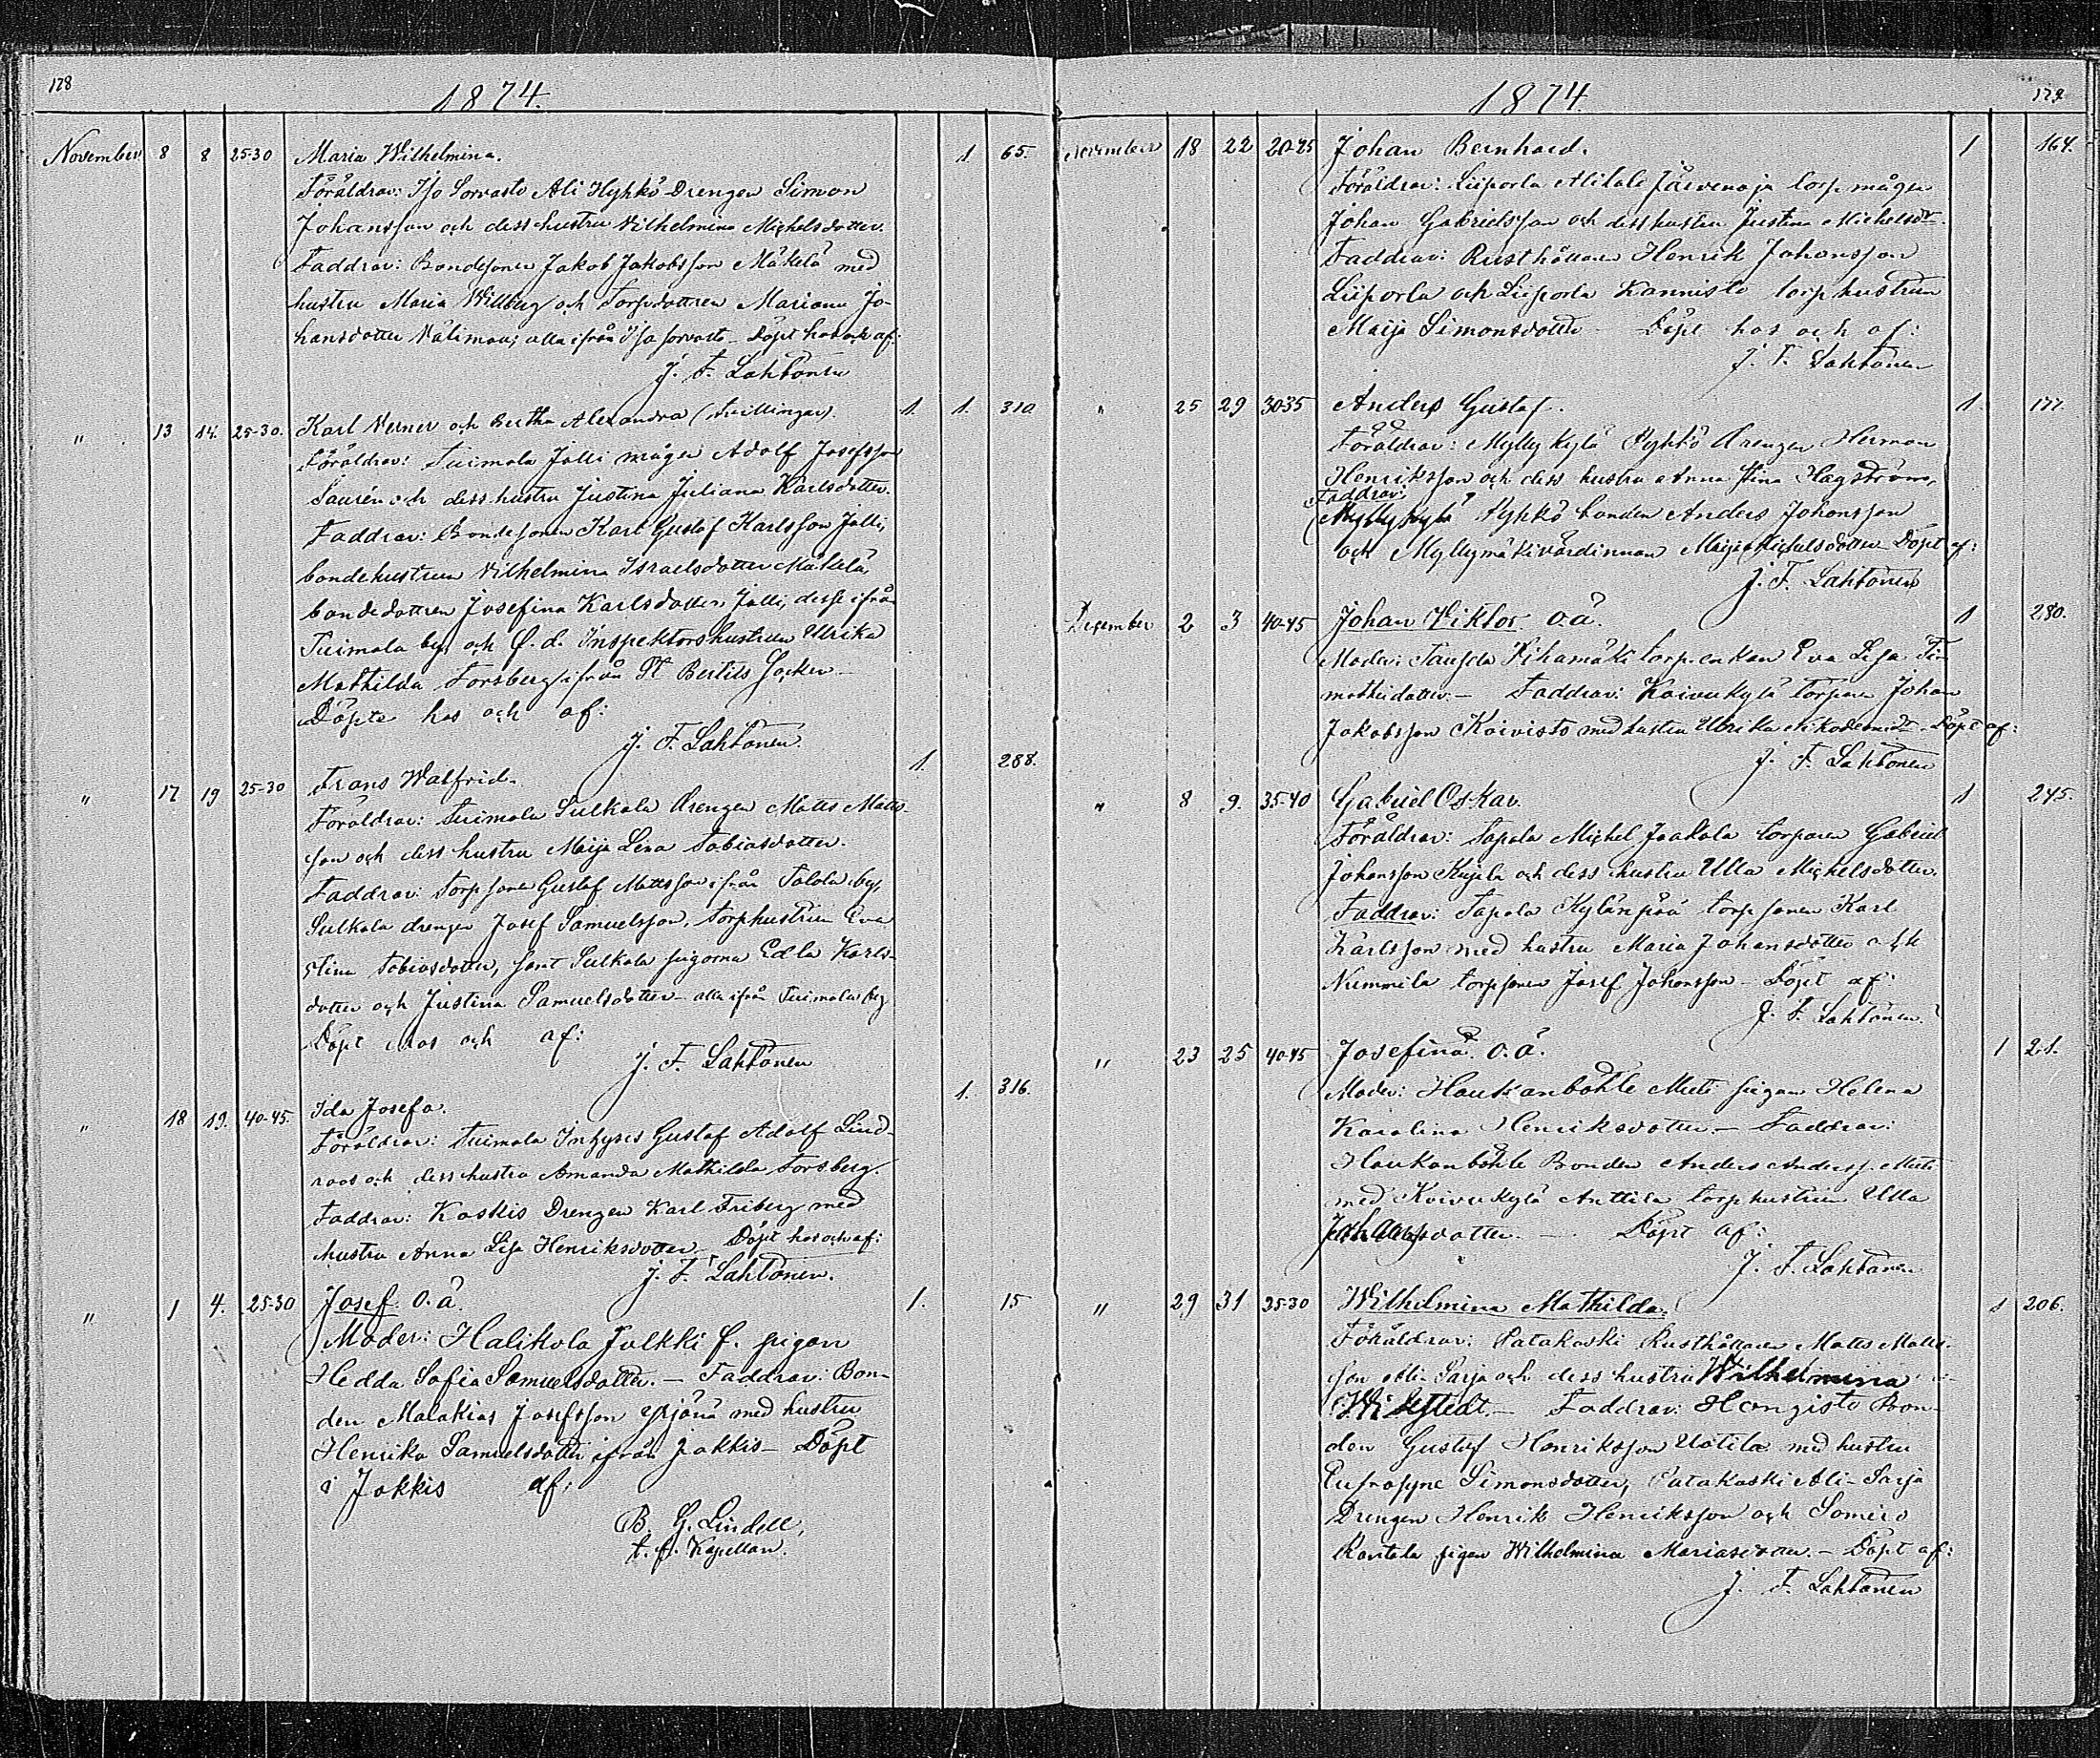 178
1874.
November 8 8 25-30 Maria Wilhelmina. 1 65.
Föräldrar: Iso Sorvasto Ali Hyhkö Drengen Simon
Johansson och dess hustru Vilhelmina Michelsdotter.
Faddrar: Bondesonen Jakob Jakobsson Mäkelä med
hustru Maria Willberg och Torpdottren Mariana Jo-
hansdotter Välimaa; alla ifrån Iso sorvasto. Döpt hos och af:
J. F. Lahtonen
" 13 14. 25-30. Karl Verner och Bertha Alexandra (Tvillingar). 1. 1. 310.
Föräldrar: Tuimala Jalli mågen Adolf Josefsson
Saurén och dess hustru Justina Juliana Karlsdotter.
Faddrar: Bondesonen Karl Gustaf Karlsson Jalli,
bondehustrun Vilhelmina Israelsdotter Mäkelä,
bondedottren Josefina Karlsdotter Jalli, desse ifrån
Tuimala by, och f. d. Inspektorshustrun Ulrika
Mathilda Forsberg ifrån St Bertils Socken
Döpte hos och af:
J. F. Lahtonen.
" 17 19 25-30 Frans Walfrid. 1. 288.
Föräldrar: Tuimala Sulkala Drengen Matts Matts-
son och dess hustru Maija Lena Tobiasdotter.
Faddrar: Torpsonen Gustaf Mattsson ifrån Talola by,
Sulkala drengen Josef Samuelsson, Torphustrun Eva
Stina Tobiasdotter, samt Sulkala pigorna Edla Karls-
dotter och Justina Samuelsdotter - alla ifrån Tuimala by
Döpt hos och af:
J. F. Lahtonen
" 18 19. 40-45. Ida Josefa. 1. 316.
Föräldrar: Tuimala Inhyses Gustaf Adolf Lind-
roos och dess hustru Amanda Mathilda Forsberg.
Faddrar: Koskis Drengen Karl Friberg med
hustru Anna Lisa Henriksdotter - Döpt hos och af:
J. F. Lahtonen.
" 1 4. 25-30 Josef. O. ä. 1. 15
Moder: Halikola Julkki f. pigan
Hedda Sofia Samuelsdotter. - Faddrar: Bon-
den Malakias Josefsson med hustru
Henrika Samuelsdotter ifrån Jokkis - Döpt
i Jokkis af:
B. G. Lindell,
t. f. Kapellan.
179
1874
November 18 22 20-25 Johan Bernhard. 1 164.
Föräldrar: Liiporla Alitalo Järvenoja torp mågen
Johan Gabrielsson och dess hustru Justina Michelsdr.
Faddrar: Rusthållaren Henrik Johansson
Liiporla och Liiporla Kannisto torphustrun
Maija Simonsdotter - Döpt hos och af:
J. F. Lahtonen
" 25 29 30-35 Anders Gustaf. 1 177.
Föräldrar: Myllykylä Pyhkö Drengen Herman
Henriksson och dess hustru Anna Stina Hagström,
Faddrar:
Myllykylä Pyhkö bonden Anders Johansson
och Myllymäkivärdinnan Maija Michelsdotter - Döpt af:
J. F. Lahtonen
December 2 3 40-45 Johan Viktor o. ä. 1 280.
Moder: Pihamäki torp-enkan Eva Lisa Ti-
motheidotter. - Faddrar: Koivukylä torparen Johan
Jakobsson Koivisto med hustru Ulrika Nikodemidr. - Döpt af:
J. F. Lahtonen
" 8 9. 35-40 Gabriel Oskar. 1 245.
Föräldrar: Tapala Michel Jaakola torparen Gabriel
Johansson Kujala och dess hustru Ulla Michelsdotter.
Faddrar: Tapala Kylänpää torpsonen Karl
Karlsson med hustru Maria Johansdotter och
Nummila torpsonen Josef Johansson - Döpt af:
J. F. Lahtonen.
" 23 25 40-45 Josefina. O. ä. 1 21.
Moder: Haukanböhle Meti pigan Helena
Karolina Henriksdotter. - Faddrar:
Haukanböhle Bonden Anders Anderss. Meti
med Koivukylä Anttila torphustrun Ulla
Johansdotter. - Döpt af:
J. F. Lahtonen
" 29 31 25-30 Wilhelmina Mathilda. 1 206.
Föräldrar: Patakoski Rusthållaren Matts Matts-
son Ali-Sarja och dess hustru Wilhelmina
Widstedt. - Faddrar: Hongisto Bon-
den Gustaf Henriksson Uotila med hustru
Eufrosyne Simonsdotter, Patakoski Ali-Sarja
Drengen Henrik Henriksson och Somero
Rantala pigan Wilhelmina Mariasdotter. - Döpt af:
J. F. Lahtonen